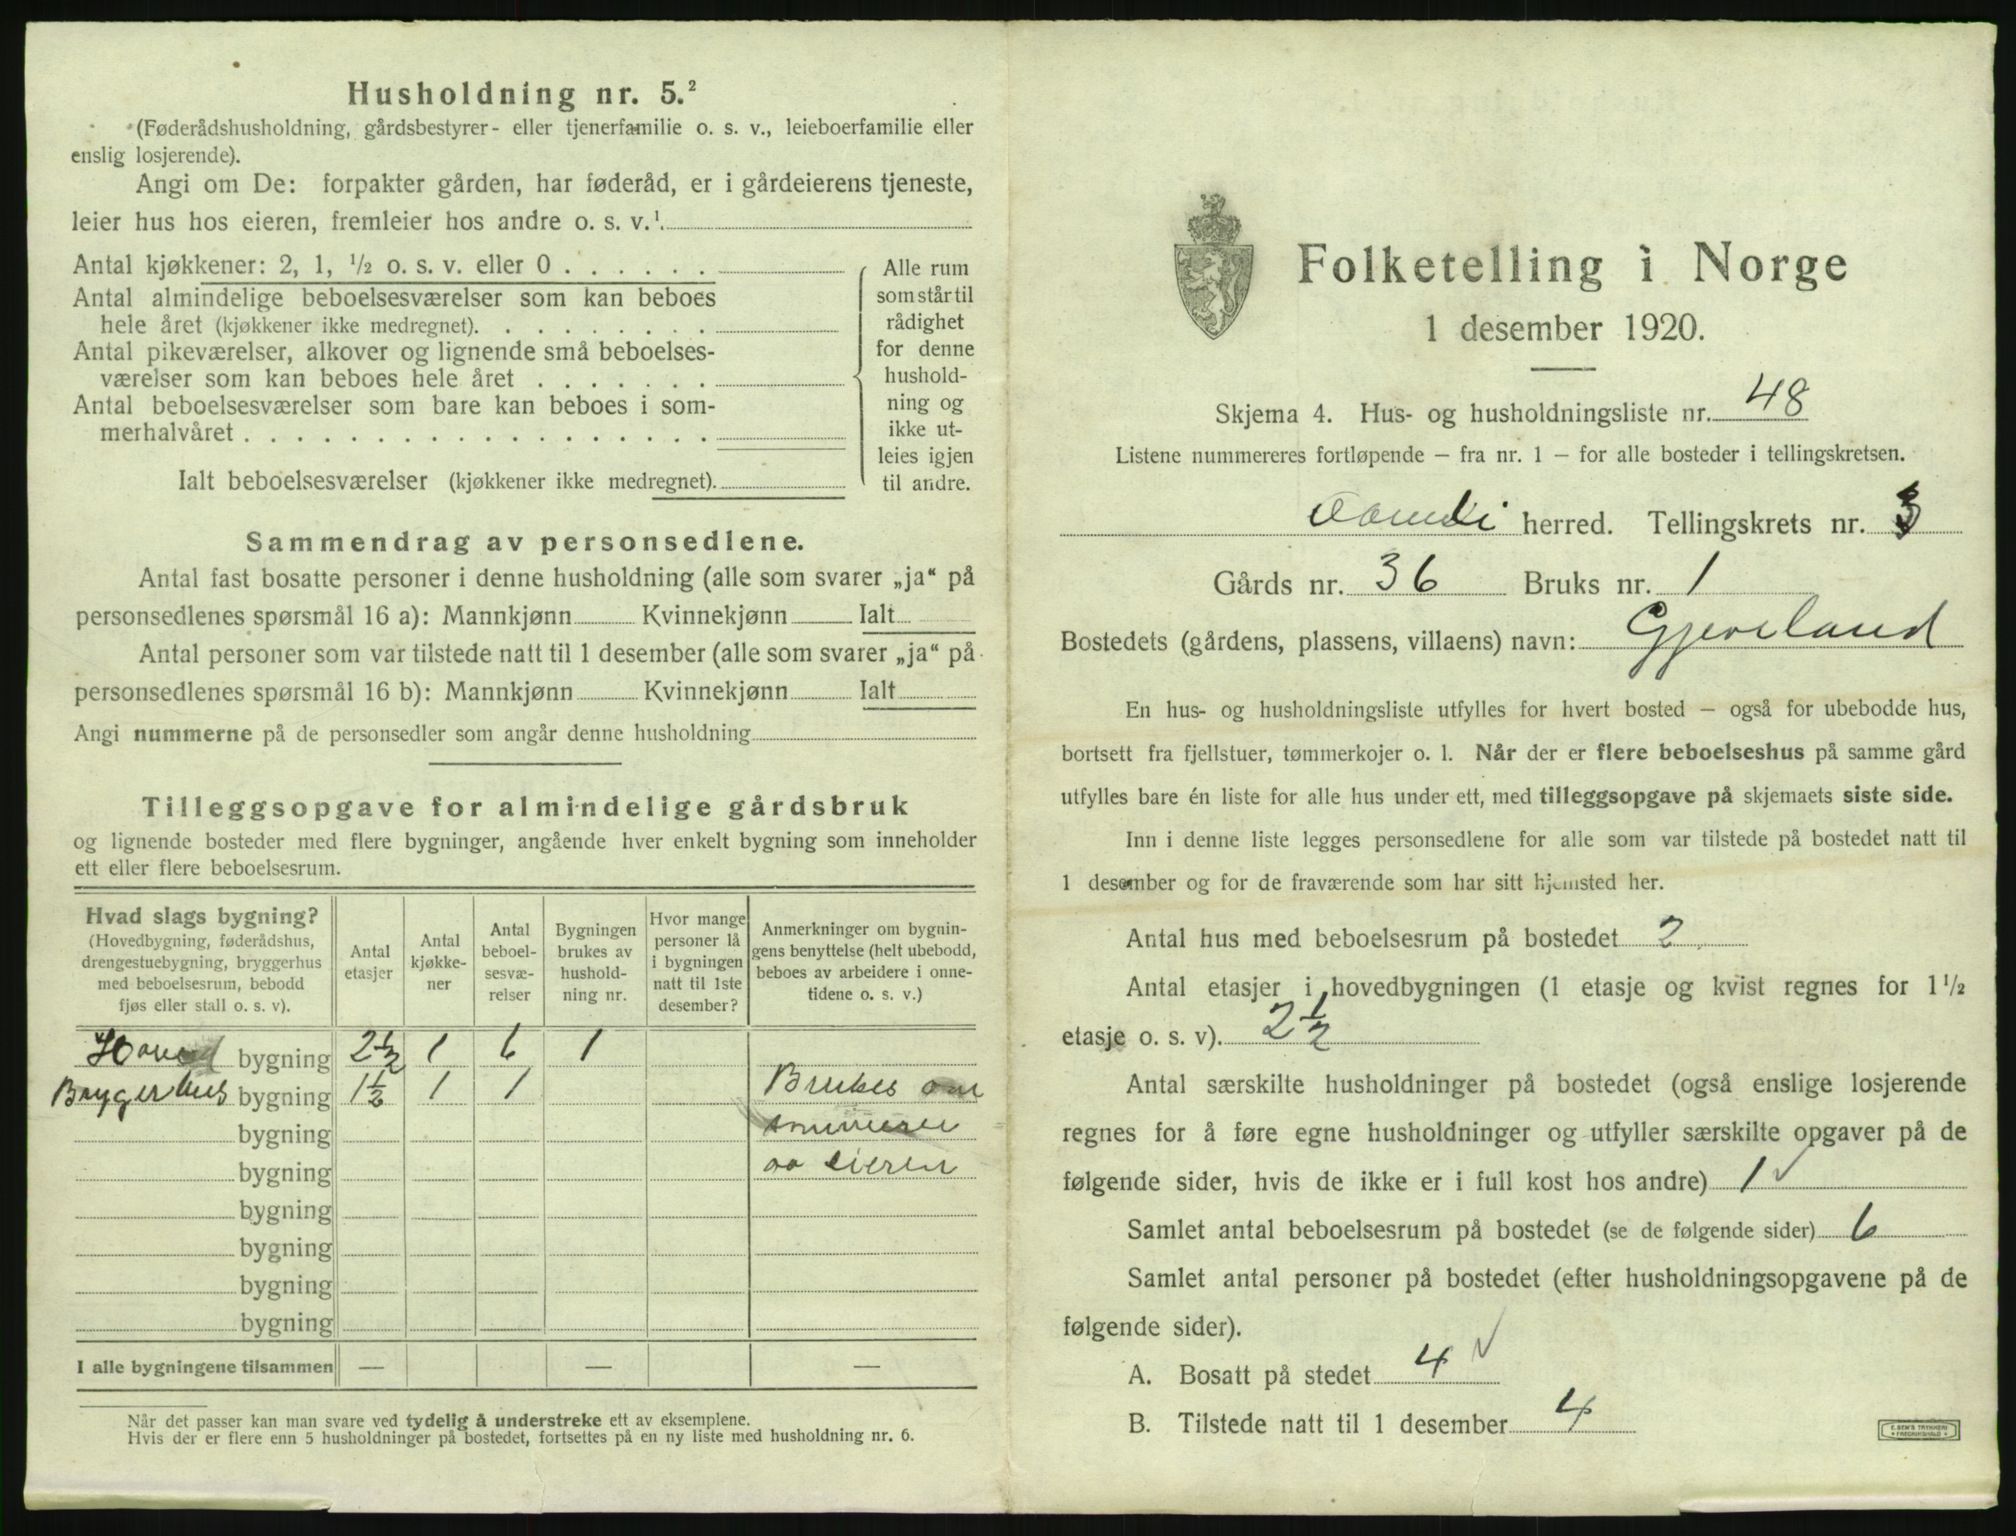 Husholdning nr. 5.²
(Føderådshusholdning, gårdsbestyrer- eller tjenerfamilie o. s. v., leieboerfamilie eller
enslig losjerende).
Angi om De: forpakter gården, har føderåd, er i gårdeierens tjeneste,
leier hus hos eieren, fremleier hos andre o. s. v.¹
Antal kjøkkener: 2, 1, ½ o. s. v. eller 0 . . . . . .
Antal almindelige beboelsesværelser som kan beboes
hele året (kjøkkener ikke medregnet). . . . . . . . .
Antal pikeværelser, alkover og lignende små beboelses-
værelser som kan beboes hele året . . . . . . .
Antal beboelsesværelser som bare kan beboes i som-
merhalvåret . . . . . . . . . . . . . . . . . .
Ialt beboelsesværelser (kjøkkener ikke medregnet).
Alle rum
som står til
rådighet
for denne
hushold-
ning og
ikke ut-
leies igjen
til andre.
Sammendrag av personsedlene.
Antal fast bosatte personer i denne husholdning (alle som svarer „ja“ på
personsedlenes spørsmål 16 a): Mannkjønn Kvinnekjønn Ialt
Antal personer som var tilstede natt til 1 desember (alle som svarer „ja“ på
personsedlenes spørsmål 16 b): Mannkjønn Kvinnekjønn Ialt
Angi nummerne på de personsedler som angår denne husholdning
Tilleggsopgave for almindelige gårdsbruk
og lignende bosteder med flere bygninger, angående hver enkelt bygning som inneholder
ett eller flere beboelsesrum.
Hvad slags bygning?
(Hovedbygning, føderådshus,
drengestuebygning, bryggerhus
med beboelsesrum, bebodd
fjøs eller stall o. s. v).
Antal
etasjer
Antal
kjøkke-
ner
Antal
beboel-
sesvæ-
relser
Bygningen
brukes av
hushold-
ning nr.
Hvor mange
personer lå
i bygningen
natt til 1ste
desember?
Anmerkninger om bygnin-
gens benyttelse (helt ubebodd,
beboes av arbeidere i onne-
tidene o. s. v.)
Hoved bygning 2½ 1 6 1
Brygerhus bygning 1½ 1 1 Brukes om
bygning sommeren
bygning av eieren
bygning
bygning
bygning
bygning
I alle bygningene tilsammen — — —
Når det passer kan man svare ved tydelig å understreke ett av eksemplene.
Hvis der er flere enn 5 husholdninger på bostedet, fortsettes på en ny liste med husholdning nr. 6.
Folketelling i Norge
1 desember 1920.
Skjema 4. Hus- og husholdningsliste nr. 48
Listene nummereres fortløpende – fra nr. 1 – for alle bosteder i tellingskretsen.
herred. Tellingskrets nr. 3
Gårds nr. 36 Bruks nr. 1
Bostedets (gårdens, plassens, villaens) navn: Gjereland
En hus- og husholdningsliste utfylles for hvert bosted – også for ubebodde hus,
bortsett fra fjellstuer, tømmerkojer o. l. Når der er flere beboelseshus på samme gård
utfylles bare én liste for alle hus under ett, med tilleggsopgave på skjemaets siste side.
Inn i denne liste legges personsedlene for alle som var tilstede på bostedet natt til
1 desember og for de fraværende som har sitt hjemsted her.
Antal hus med beboelsesrum på bostedet 2
Antal etasjer i hovedbygningen (1 etasje og kvist regnes for 1½
etasje o. s. v). 2½
Antal særskilte husholdninger på bostedet (også enslige losjerende
regnes for å føre egne husholdninger og utfyller særskilte opgaver på de
følgende sider, hvis de ikke er i full kost hos andre) 1 ✓
Samlet antal beboelsesrum på bostedet (se de følgende sider) 6
Samlet antal personer på bostedet (efter husholdningsopgavene på de
følgende sider).
A. Bosatt på stedet 4 ✓
B. Tilstede natt til 1 desember 4
E. SEM'S TRYKKERI
FREDRIKSHALD